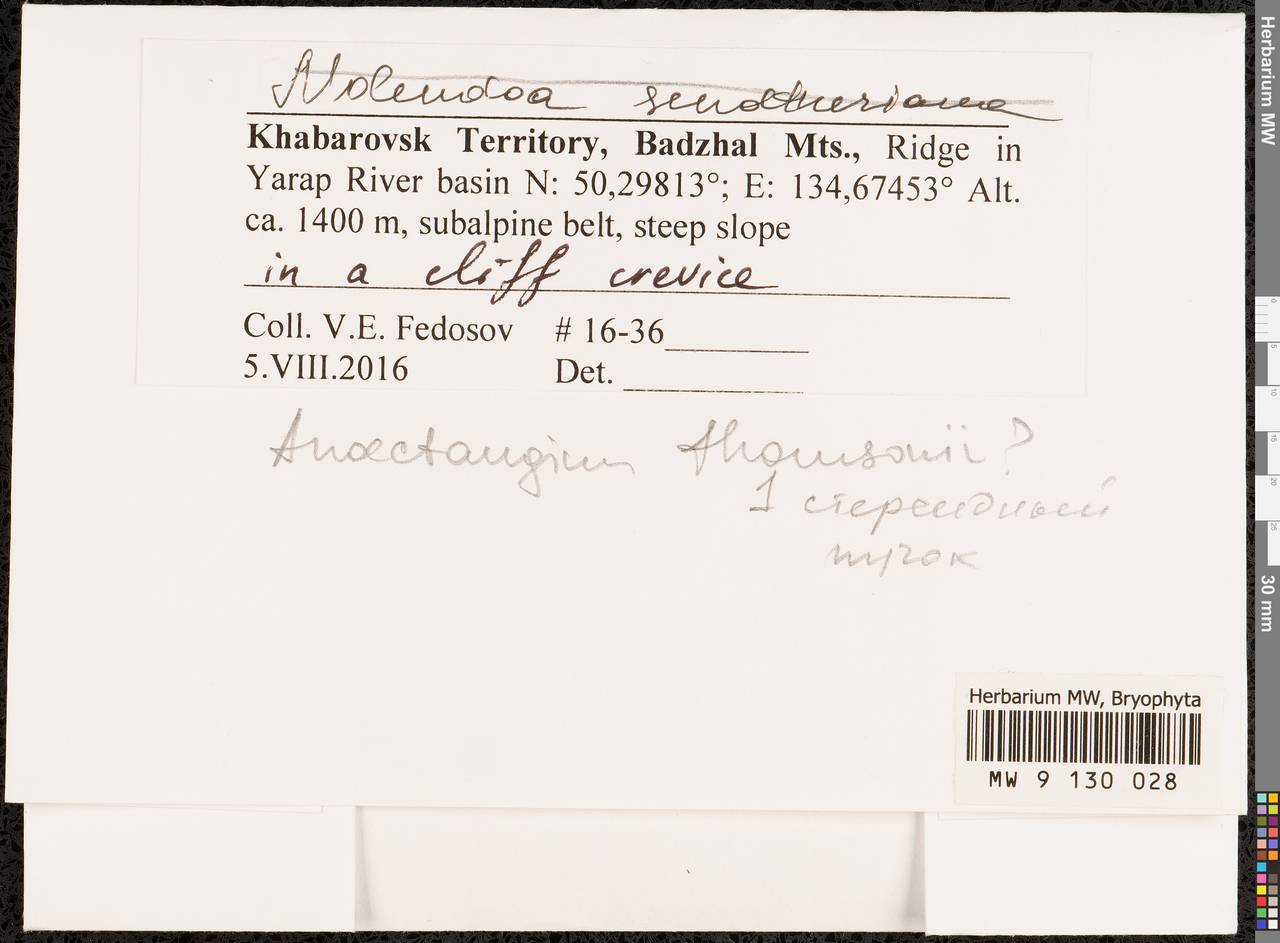 Molendoa sendtneriana
Khabarovsk Territory, Badzhal Mts., Ridge in
Yarap River basin N: 50,29813°; E: 134,67453° Alt.
ca. 1400 m, subalpine belt, steep slope
in a cliff crevice
Coll. V.E. Fedosov # 16-36
5.VIII.2016 Det.
Anoectangium thomsonii?
1 стереидный
пучок
Herbarium MW, Bryophyta
MW 9 130 028
Herbarium MW
0
5
10
15
20
25
30 mm